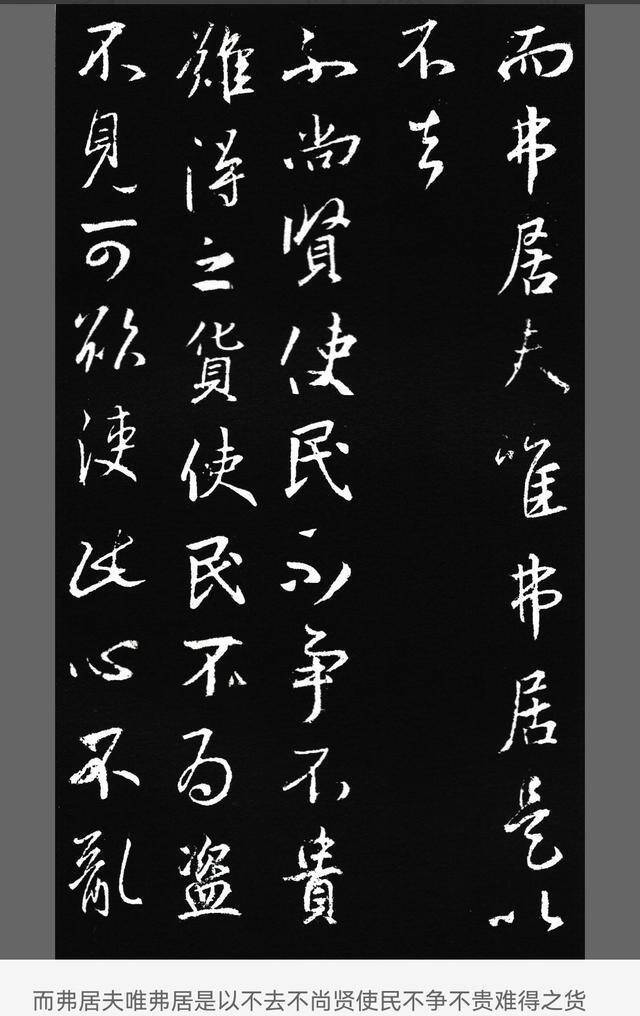 而弗居夫唯弗居是以
不去
不尚賢使民不爭不貴
難得之貨使民不為盜
不見可欲使此心不亂
而弗居夫唯弗居是以不去不尚贤使民不争不贵难得之货